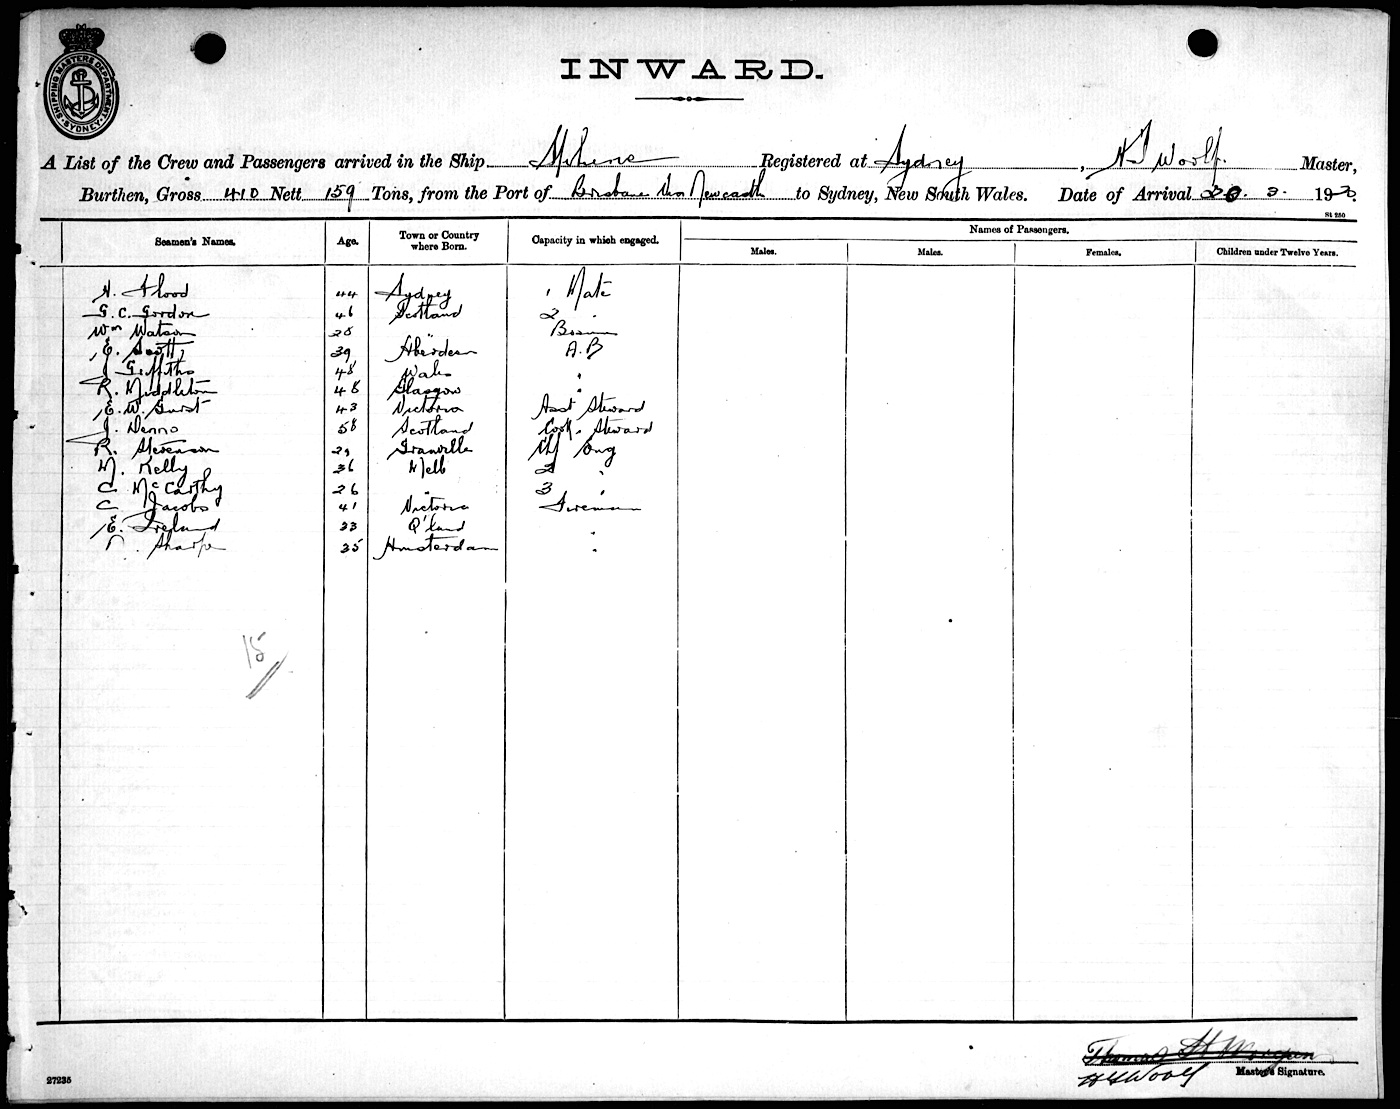 SHIPPING MASTERS DEPARTMENT
SYDNEY
INWARD.
A List of the Crew and Passengers arrived in the Ship Registered at Sydney, Woolf. Master,
Burthen, Gross 410 Nett 159 Tons, from the Port of Brisbane via Newcastle to Sydney, New South Wales. Date of Arrival 20. 3. 19
St 250
Seamen's Names. Age. Town or Country where Born. Capacity in which engaged. Names of Passengers.
Males. Males. Females. Children under Twelve Years.
H. Flood 44 Sydney 1 Mate
G. C. Gordon 46 Scotland 2 "
Wm Watson 28 " Bosun
E. Scott 39 Aberdeen A.B
J Griffiths 48 Wales "
R. Middleton 48 Glasgow "
E. W. Gurst 43 Victoria Asst Steward
J. Denno 58 Scotland Cook & Steward
R. Stevenson 29 Granville Chf Eng
M. Kelly 36 Melb 2 "
C McCarthy 26 " 3 "
C Jacobs 41 Victoria Fireman
E. Ireland 33 Q'land "
Sharpe 35 Amsterdam "
15
Thomas
Woolf Master's Signature.
27235